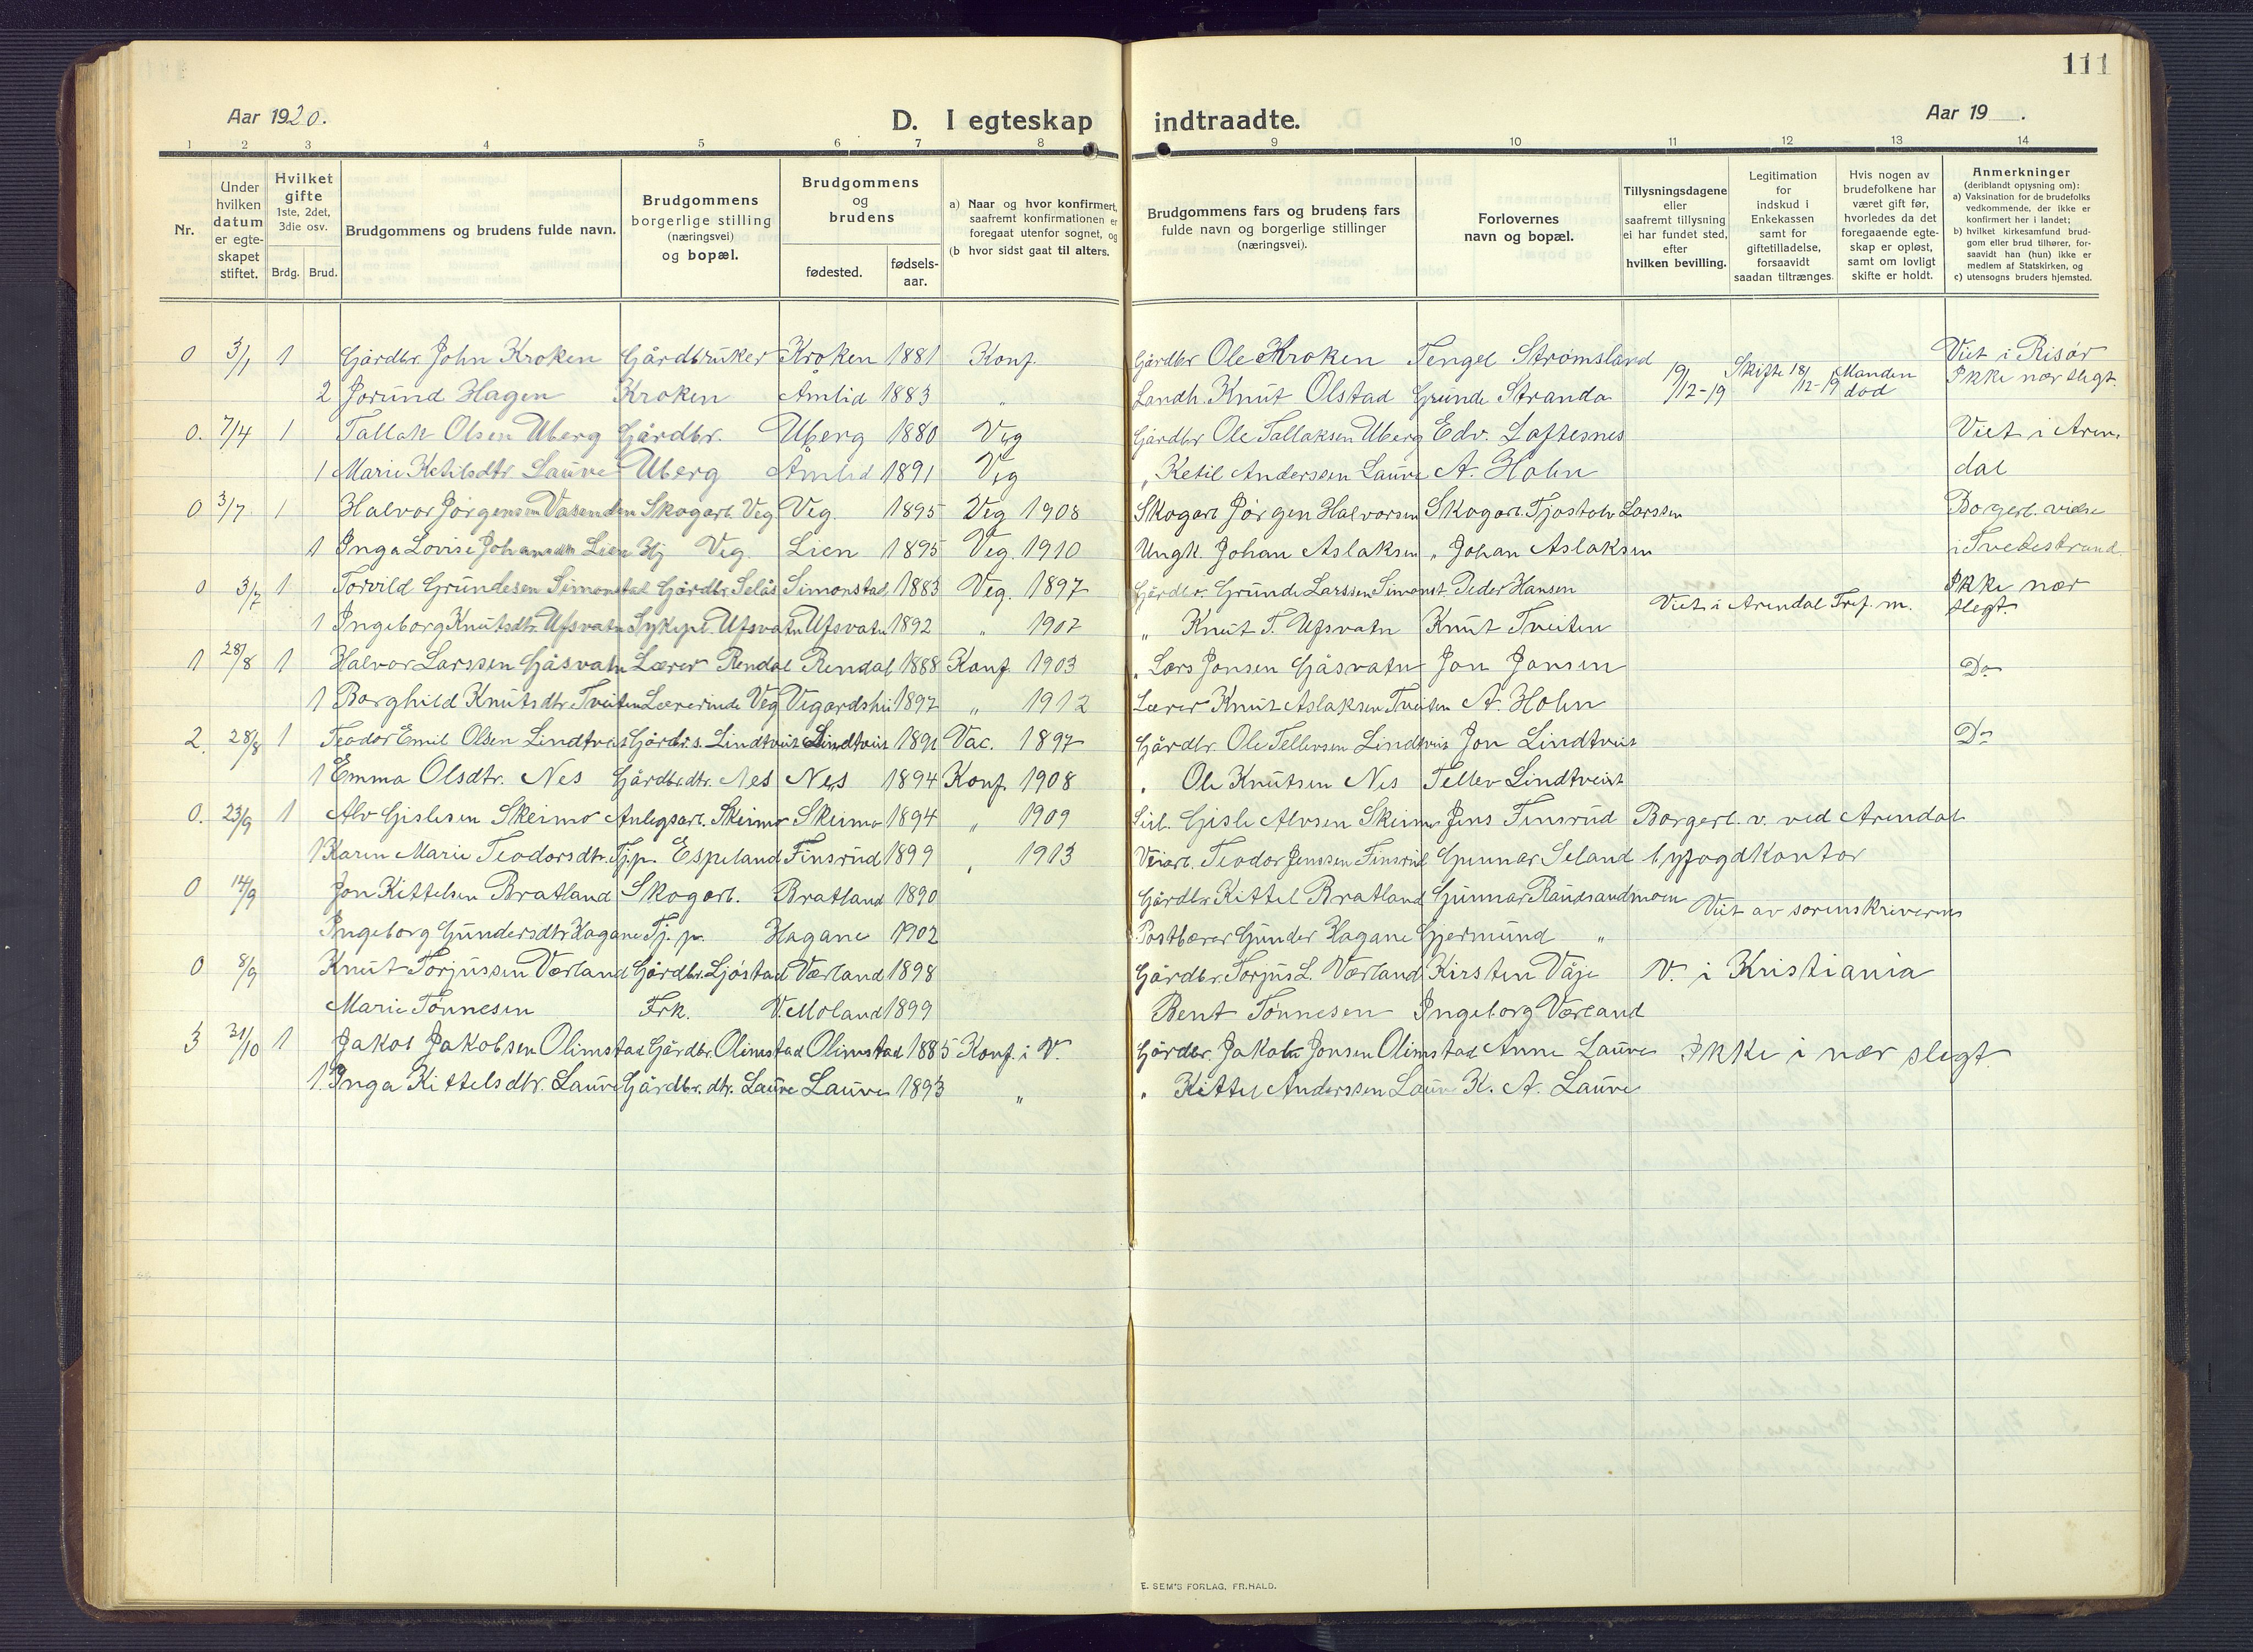 111
Aar 1920.
D. I egteskap indtraadte.
Aar 19 .
1 2 3 4 5 6 7 8 9 10 11 12 13 14
Nr.
Under hvilken datum er egte-skapet stiftet.
Hvilket gifte 1ste, 2det, 3die osv.
Brdg. Brud.
Brudgommens og brudens fulde navn.
Brudgommens borgerlige stilling (næringsvei) og bopæl.
Brudgommens og brudens
fødested.
fødsels-aar.
a) Naar og hvor konfirmert, saafremt konfirmationen er foregaat utenfor sognet, og
(b hvor sidst gaat til alters.
Brudgommens fars og brudens fars fulde navn og borgerlige stillinger (næringsvei).
Forlovernes navn og bopæl.
Tillysningsdagene eller saafremt tillysning ei har fundet sted, efter hvilken bevilling.
Legitimation for indskud i Enkekassen samt for giftetilladelse, forsaavidt saadan tiltrænges.
Hvis nogen av brudefolkene har været gift før, hvorledes da det foregaaende egte-skap er opløst, samt om lovligt skifte er holdt.
Anmerkninger
(deriblandt oplysning om):
a) Vaksination for de brudefolks vedkommende, der ikke er konfirmert her i landet;
b) hvilket kirkesamfund brud-gom eller brud tilhører, for-saavidt han (hun) ikke er medlem af Statskirken, og
c) utensogns bruders hjemsted.
0 3/1 1 Gårdbr. John Kroken Gårdbruker Kroken 1881 Konf. Gårdbr Ole Kroken Tengel Strømsland 19/12-19 Skifte 18/12-19 Manden død Viet i Risør
2 Jorund Hagen Kroken Åmlid 1883 " Landh. Knut Olstad Grunde Stranda Ikke nær slegt.
0. 7/4 1 Tallak Olsen Uberg Gårdbr. Uberg 1880 Veg Gårdbr Ole Tallaksen Uberg Edv. Loftesnes Viet i Aren-
1 Marie Ketilsdtr Lauve Uberg Åmlid 1891 Veg " Ketil Anderssen Lauve A. Holm dal
0 3/7 1 Halvor Jørgensen Vasenden Skogarb. Veg Veg. 1895 Veg 1908 Skogarb Jørgen Halvorsen Skogarb. Tjostolv Larssen Borgerl. vielse
1 Inga Lovise Johansdtr Lien Hj Veg. Lien 1895 Veg. 1910 Ungk. Johan Aslaksen " Johan Aslaksen i Tvedestrand
0 3/7 1 Torvild Grundesen Simonstad Gårdbr. Selås Simonstad 1883 Veg. 1897 Gårdbr. Grunde Larssen Simonst. Peder Hansen Ikke nær
1 Ingeborg Knutsdtr. Ufsvatn Sykepl. Ufsvatn Ufsvatn 1892 " 1907 " Knut T. Ufsvatn Knut Tveiten Viet i Arendal Tref. m. slegt.
1 28/8 1 Halvor Larssen Gåsvatn Lærer Rendal Rendal 1888 Konf. 1903 " Lars Jonsen Gåsvatn Jon Jonsen Do
1 Borghild Knutsdtr Tveiten Lærerinde Veg Vegardshei 1897 " 1912 Lærer Knut Aslaksen Tveiten A. Holm
2. 28/8 1 Teodor Emil Olsen Lindtveit Gårdbr.s. Lindtveit Lindtveit 1891 Vac. 1897 Gårdbr. Ole Tellevsen Lindtveit Jon Lindtveit Do
1 Emma Olsdtr. Nes Gårdbr.dtr. Nes Nes 1894 Konf. 1908 " Ole Knutsen Nes Tellev Lindtveit
0. 23/9 1 Alv Gislesen Skeimo Anlegsarb. Skeimo Skeimo 1894 " 1909 Gisle Alvsen Skeimo Jens Finsrud Borgerl. v. ved Arendal
1 Karen Marie Teodorsdtr. Tj.p. Espeland Finsrud 1899 " 1913 Veiarb. Teodor Jenssen Finsrud Gunnar Seland byfogdkontor
0 14/9 Jon Kittelsen Bratland Skogarb. Bratland 1890 Gårdbr. Kittel Bratland Gunnar Raudsandmoen Viet av sorenskriveren
Ingeborg Gundersdtr Hagane Tj. p. Hagane 1902 Postbærer Gunder Hagane Gjermund "
0 8/9 Knut Torjussen Værland Gårdbr. Ljøstad Værland 1898 Gårdbr. Torjus L. Værland Kirsten Våje V. i Kristiania
Marie Tønnesen Frk. V. Moland 1899 Bent Tønnesen Ingeborg Værland
3 31/10 1 Jakob Jakobsen Olimstad Gårdbr. Olimstad Olimstad 1885 Konf. i V. Gårdbr. Jakob Jonsen Olimstad Anne Lauve Ikke i nær slegt.
1 Inga Kittelsdtr. Lauve Gårdbr. dtr. Lauve Lauve 1893 " " Kittel Anderssen Lauve K. A. Lauve
E. SEM'S FORLAG, FR.HALD.